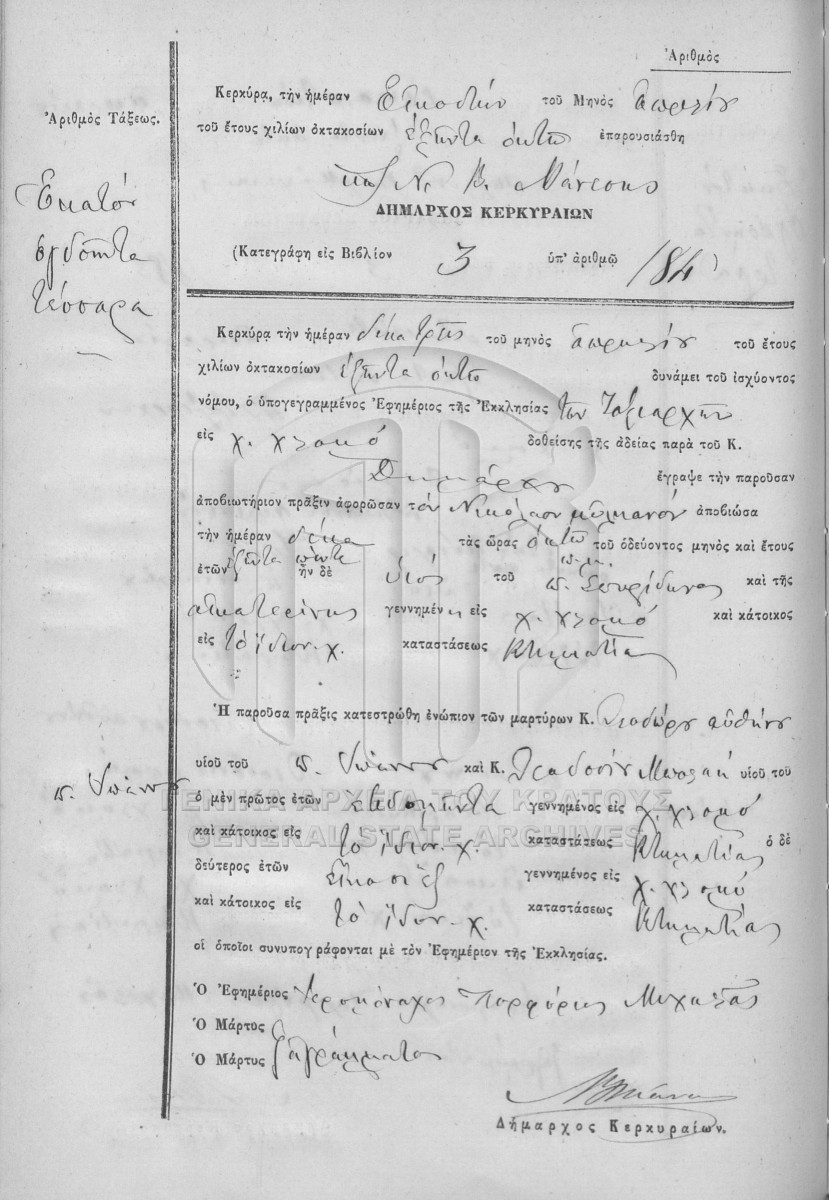 Ἀριθμὸς
Κερκύρα, τὴν ἡμέραν Εἰκοστὴν τοῦ Μηνὸς Ἀπριλίου
Ἀριθμὸς Τάξεως.
τοῦ ἔτους χιλίων ὀκτακοσίων ἑξῆντα ὀκτὼ ἐπαρουσιάσθη
Ν. Β. Μάνεσης
Ἑκατὸν
ΔΗΜΑΡΧΟΣ ΚΕΡΚΥΡΑΙΩΝ
ὀγδοῆντα
(Κατεγράφη εἰς Βιβλίον 3 ὑπ' ἀριθμῷ 184)
τέσσαρα
Κερκύρα τὴν ἡμέραν δέκα τρεῖς τοῦ μηνὸς Ἀπριλίου τοῦ ἔτους
χιλίων ὀκτακοσίων ἑξῆντα ὀκτὼ δυνάμει τοῦ ἰσχύοντος
νόμου, ὁ ὑπογεγραμμένος Ἐφημέριος τῆς Ἐκκλησίας τῶν Ταξιαρχῶν
εἰς χ. Χλομό δοθείσης τῆς ἀδείας παρὰ τοῦ Κ.
Δημάρχου ἔγραψε τὴν παροῦσαν
ἀποβιωτήριον πρᾶξιν ἀφορῶσαν τὸν Νικόλαον ἀποβιώσα
τὴν ἡμέραν δέκα τὰς ὥρας ὀκτὼ π.μ. τοῦ ὁδεύοντος μηνὸς καὶ ἔτους
ἐτῶν ἑξῆντα πέντε ἦν δὲ υἱὸς τοῦ π. Σπυρίδωνος καὶ τῆς
Αἰκατερίνης γεννημένη εἰς χ. Χλομό καὶ κάτοικος
εἰς τὸ ἴδιον χ. καταστάσεως Κτηματίας
Ἡ παροῦσα πρᾶξις κατεστρώθη ἐνώπιον τῶν μαρτύρων Κ. Θεοδώρου
υἱοῦ τοῦ π. Ἰωάννου καὶ Κ. Θεοδοσίου υἱοῦ τοῦ
π. Ἰωάννου
ὁ μὲν πρῶτος ἐτῶν ἑβδομῆντα γεννημένος εἰς χ. Χλομό
καὶ κάτοικος εἰς τὸ ἴδιον χ. καταστάσεως Κτηματίας ὁ δὲ
δεύτερος ἐτῶν εἴκοσι ἓξ γεννημένος εἰς χ. Χλομό
καὶ κάτοικος εἰς τὸ ἴδιον χ. καταστάσεως Κτηματίας
οἱ ὁποῖοι συνυπογράφονται μὲ τὸν Ἐφημέριον τῆς Ἐκκλησίας.
Ὁ Ἐφημέριος Ἱερομόναχος Πορφύριος
Ὁ Μάρτος
Ὁ Μάρτυς ἀγράμματοι
Δήμαρχος Κερκυραίων.
ΓΕΝΙΚΑ ΑΡΧΕΙΑ ΤΟΥ ΚΡΑΤΟΥΣ
GENERAL STATE ARCHIVES